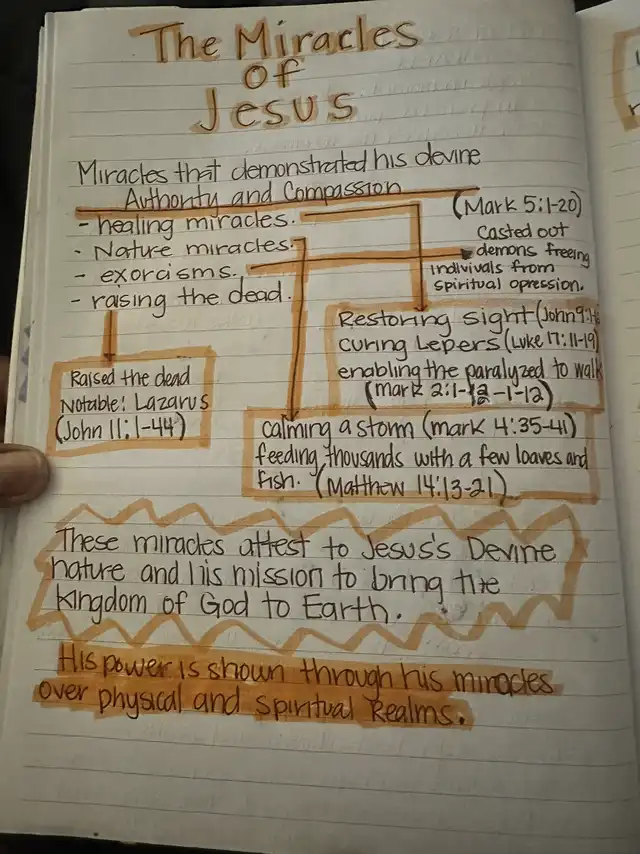 The Miracles
of
Jesus
Miracles that demonstrated his devine
Authority and Compassion
- healing miracles.
- Nature miracles.
- exorcisms.
- raising the dead.
(Mark 5:1-20)
Casted out
demons freeing
indivivals from
spiritual opression.
Restoring sight (John 9:
curing Lepers (Luke 17:11-19)
enabling the paralyzed to walk
(mark 2:1-12 -1-12)
Raised the dead
Notable: Lazarus
(John 11:1-44)
calming a storm (mark 4:35-41)
feeding thousands with a few loaves and
fish. (Matthew 14:13-21)
These miracles attest to Jesus's Devine
nature and his mission to bring the
Kingdom of God to Earth.
His power is shown through his miracles
over physical and spiritual Realms.